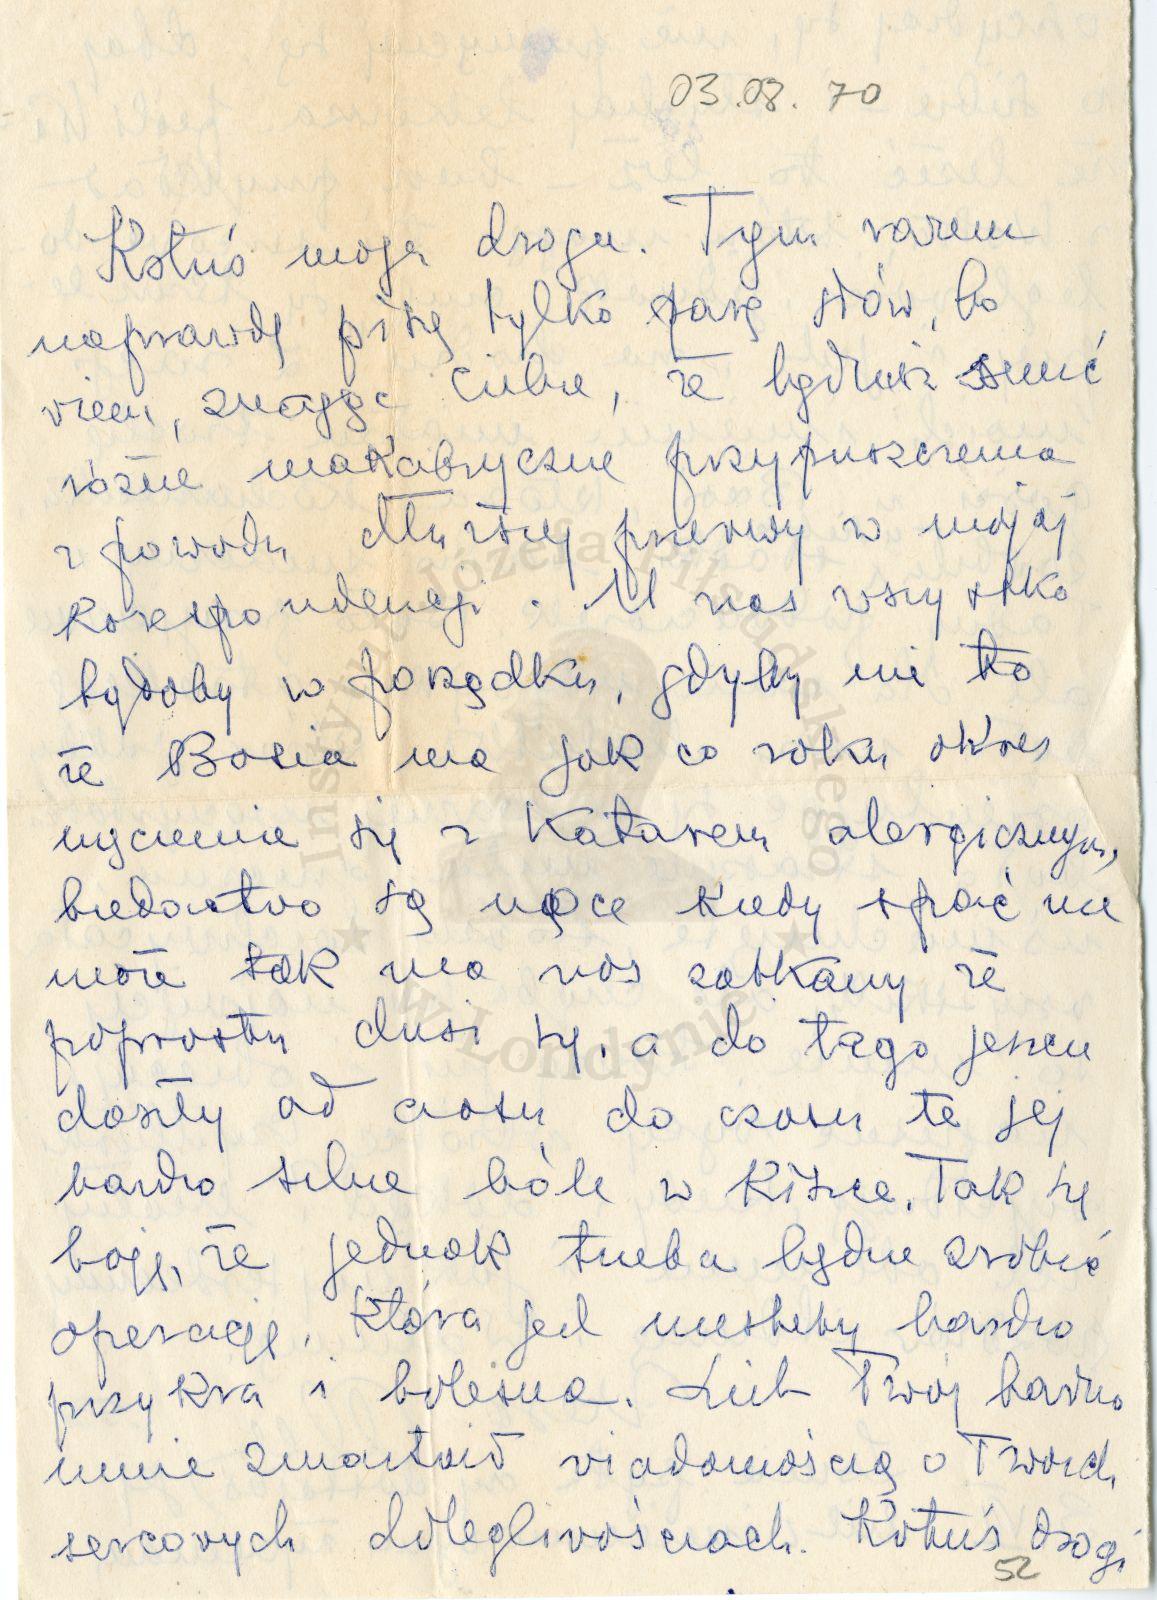 03.08.70
Kotuś moja droga. Tym razem
naprawdę piszę tylko parę słów, bo
wiem, znając Ciebie, że będziesz snuć
różne makabryczne przypuszczenia
z powodu dłuższej przerwy w mojej
korespondencji. U nas wszystko
byłoby w porządku, gdyby nie to
że Basia ma jak co roku okres
męczenia się z katarem alergicznym,
biedactwo są noce kiedy spać nie
może tak ma nos zatkany że
poprostu dusi się, a do tego jeszcze
doszły od czasu do czasu te jej
bardzo silne bóle w kiszce. Tak się
boję, że jednak trzeba będzie zrobić
operację, która jest niestety bardzo
przykra i bolesna. List Twój bardzo
mnie zmartwił wiadomością o Twoich
sercowych dolegliwościach. Kotuś drogi
52
Instytut Józefa Piłsudskiego
w Londynie